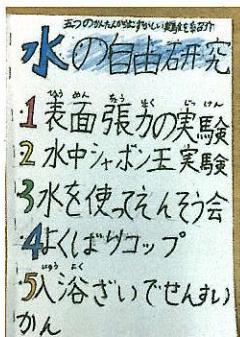 五つのかんたんからむずかしい実験を紹介
水の自由研究
1 表面張力の実験
2 水中シャボン玉実験
3 水を使ってえんそう会
4 よくばりコップ
5 入浴ざいでせんすい
かん